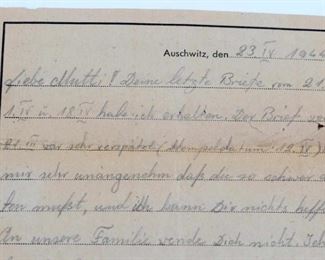 Auschwitz, den 23 IV 1944
Liebe Mutti! Deine letzte Briefe vom 21
1.IV u. 18 IV habe ich erhalten. Der Brief vo
21. III war sehr verspätet (Stempeldatum: 12 IV)
mir sehr unangenehm daß du so schwer
ten mußt, und ich kann Dir nichts helf
An unsere Familie wende Dich nicht. Ich